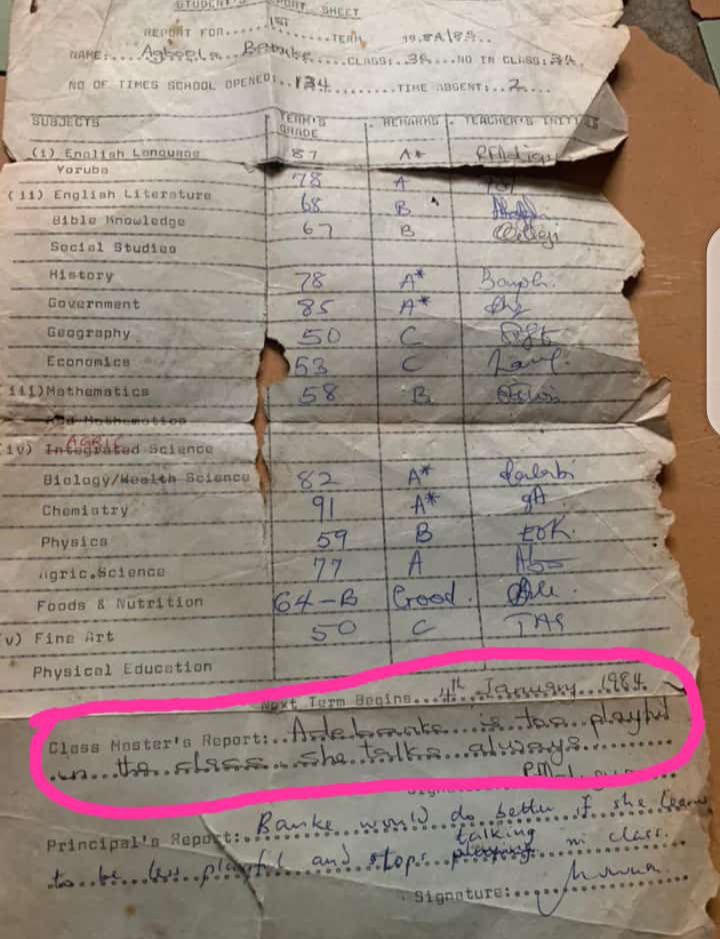 STUDENT'S REPORT SHEET
REPORT FOR 1ST TERM
NAME: Agboola Banke CLASS: 3A NO IN CLASS:
NO OF TIMES SCHOOL OPENED: 134 TIME ABSENT: 2
SUBJECTS TERM'S GRADE REMARKS TEACHER'S INITIALS
(i) English Language 87 A*
Yoruba 78 A
(ii) English Literature 68 B
Bible Knowledge 67 B
Social Studies
History 78 A*
Government 85 A*
Geography 50 C
Economics 53 C
(iii) Mathematics 58 B
Add Mathematics
AGRIC
(iv) Integrated Science
Biology/Health Science 82 A*
Chemistry 91 A* gA
Physics 59 B EOK.
Agric.Science 77 A
Foods & Nutrition 64-B Good.
(v) Fine Art 50 C
Physical Education
Next Term Begins 4th January 1984
Class Master's Report: Adebanke is too playful
in the class. She talks always.
Signature
Principal's Report: Banke would do better if she learns
to be less playful and stops talking playing in class.
Signature: